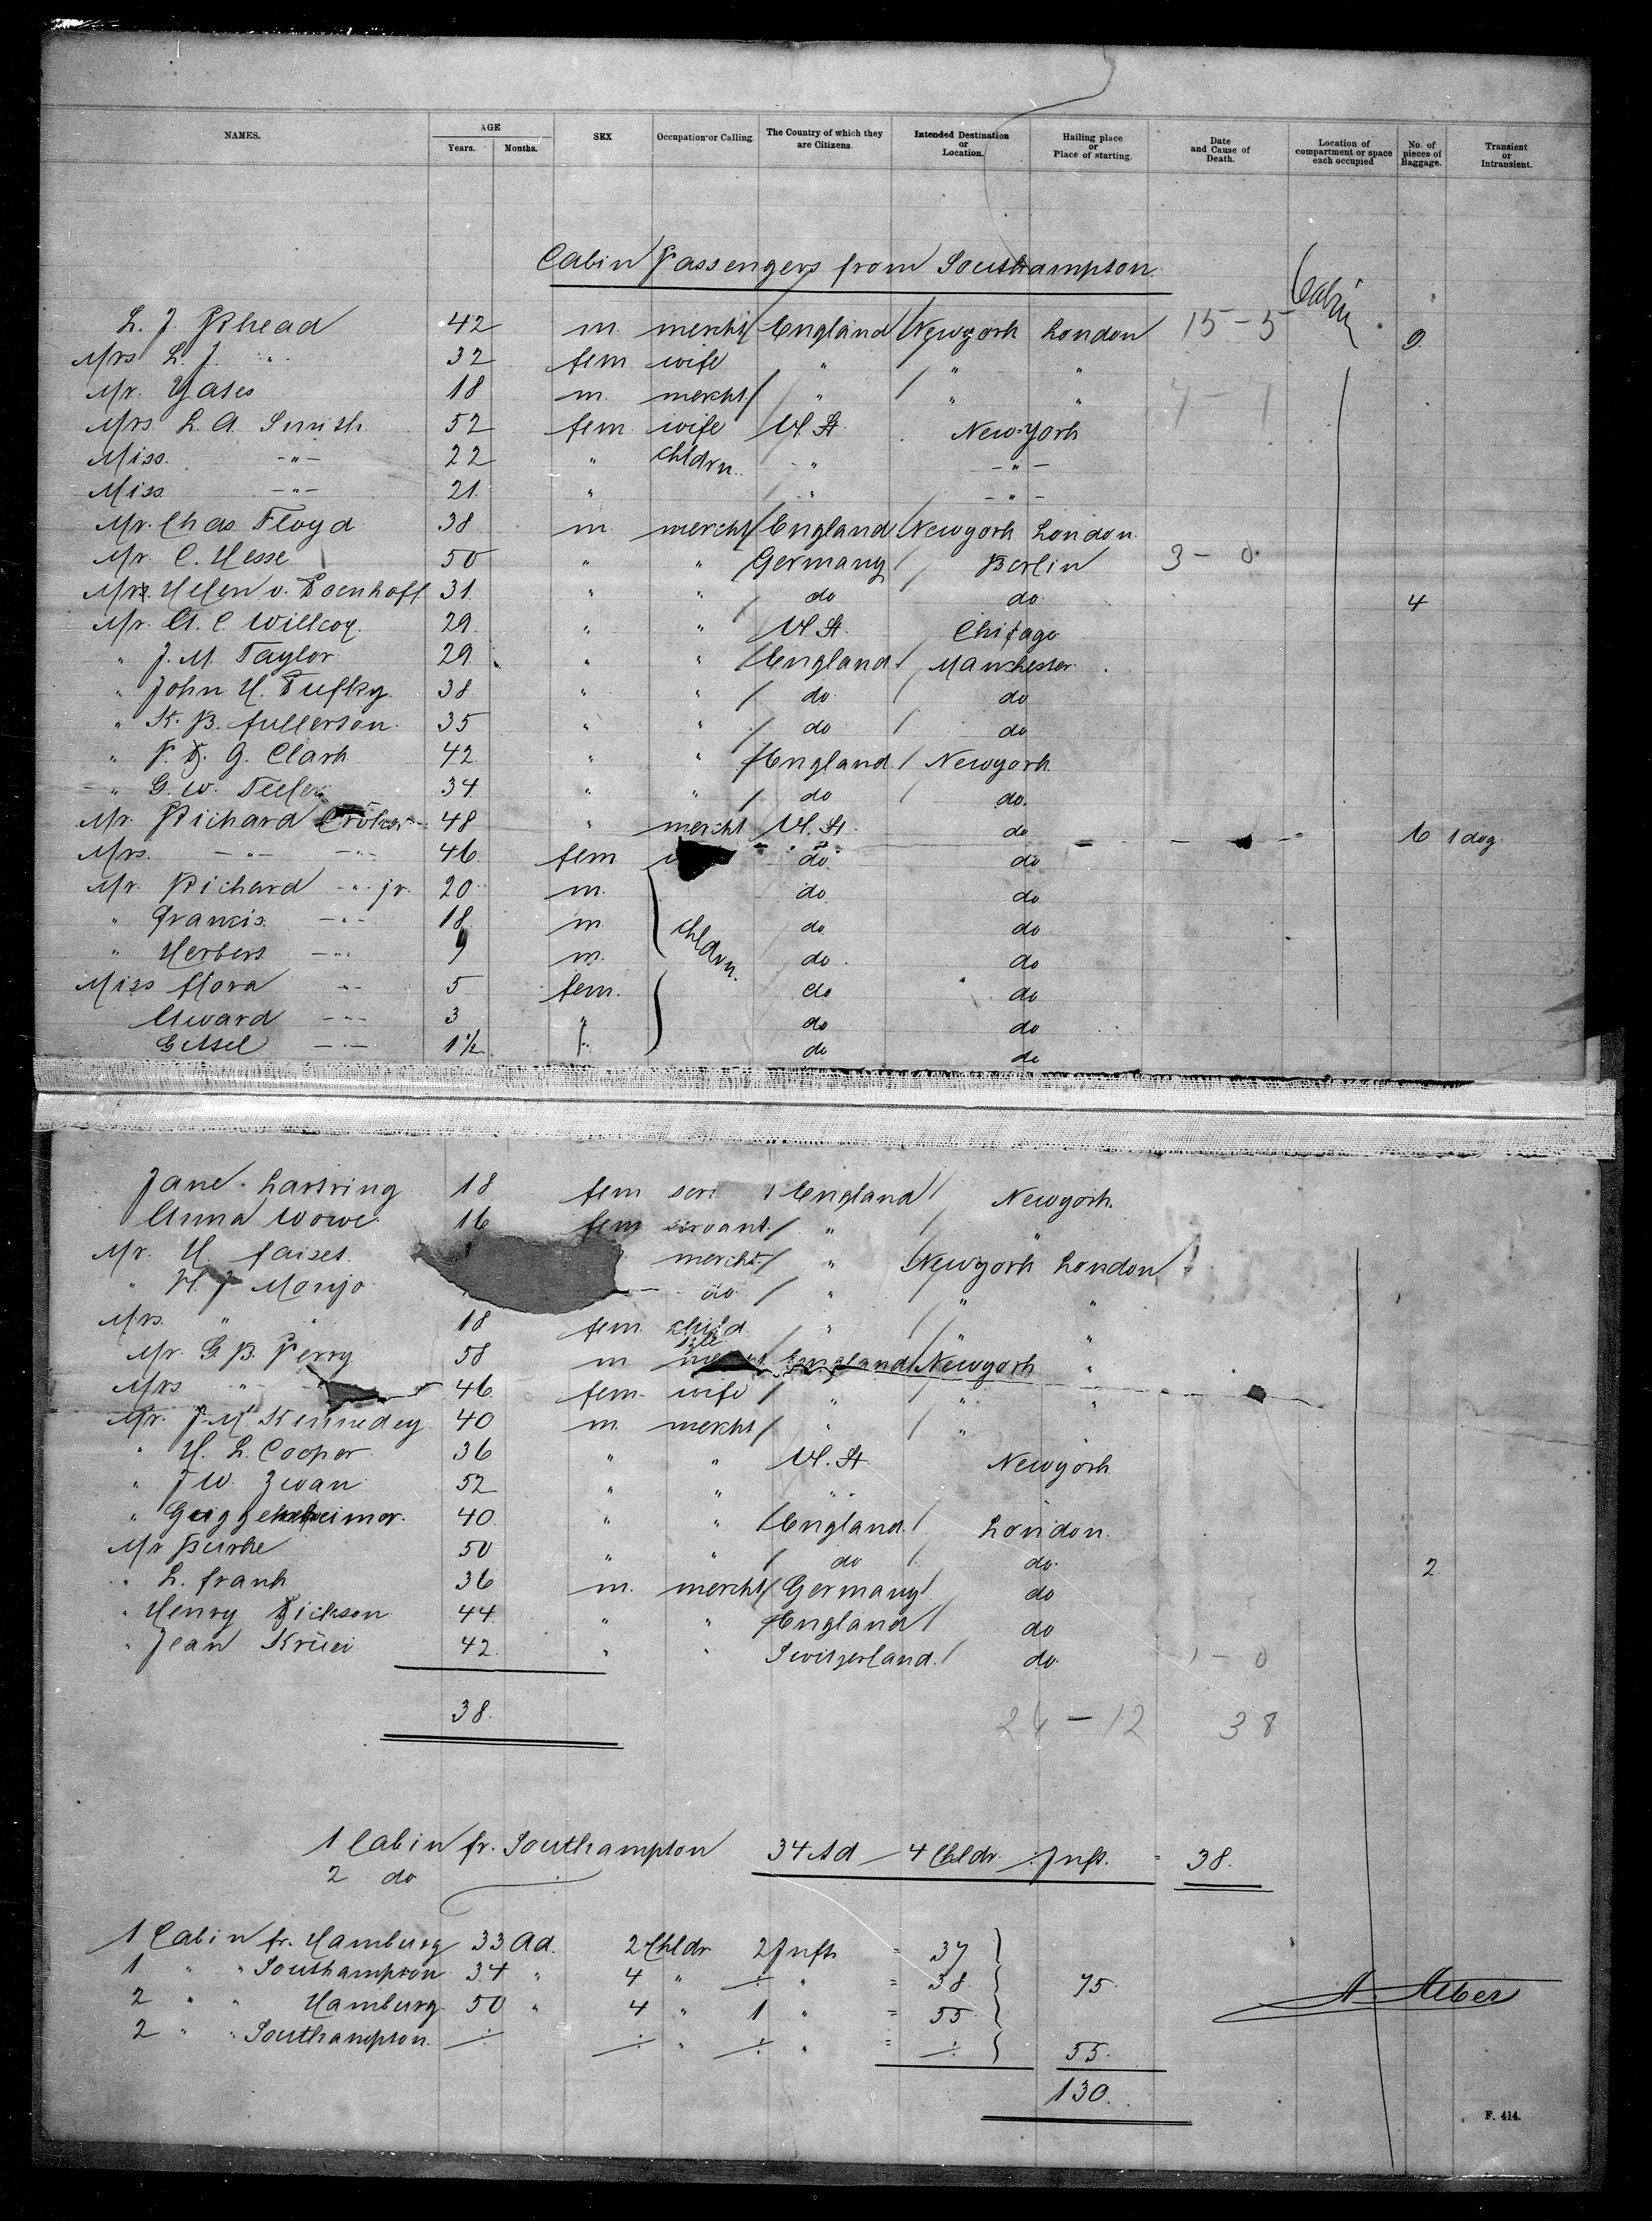 NAMES. AGE Years. Months. SEX Occupation or Calling. The Country of which they are Citizens. Intended Destination or Location. Hailing place or Place of starting. Date and Cause of Death. Location of compartment or space each occupied No. of pieces of Baggage. Transient or Intransient.
Cabin Passengers from Southampton.
Cabin
L. J. Rhead 42 m. mercht England Newyork London 15-5 9
Mrs L. J. " 32 fem wife " " "
Mr. Yates 18 m. mercht. " " "
Mrs L. A. Smith 52 fem wife U. St. New-York
Miss. -"- 22 " chldrn. " -"-
Miss -"- 21. " " -"-
Mr. Chas Floyd 38 m. mercht England Newyork London.
Mr. C. Hesse 50 " " Germany Berlin 3-0
Mrs. Helen v. Doenhoff 31. " " do do. 4
Mr. A. C. Willcox. 29. " " U. St. Chicago
" J. M. Taylor 29 " " England Manchester
" John H. Tufky. 38 " " do do
" K. B. Fullerson. 35 " " do do
" P. D. G. Clark 42 " " England. Newyork
" G. W. 34 " " do do.
Mr. Richard Cröker 48 " mercht U. St. do 6 1 dog.
Mrs. -"- -"- 46. fem do do
Mr. Richard -"- jr. 20 m. do do
" Francis -"- 18 m. chldrn. do do
" Herbert -"- 9 m. do do
Miss Flora -"- 5 fem. do do
Edward -"- 3 " do do
Ethel -"- 1½ do do
Jane Lartring 18 fem England Newyork.
Anna Wowe 16 fem servant. " "
Mr. H. Faises mercht " Newyork London
" H. J. Monjo do " " "
Mrs. " " 18 fem. child " " "
Mr. G. B. Perry 58 m England Newyork "
Mrs " 46 fem. wife " " "
Mr. J. M. Kennedey 40 m. mercht " "
" H. L. Cooper 36 " " U. St. Newyork
" J W. Zwan 52 " " " "
" Guggenheimer. 40 " " England. London.
Mr Burke 50 " " do do. 2
" L. Frank 36 m. mercht Germany do
" Henry Dickson 44 " " England do
" Jean Krüci 42 " " Switzerland. do. 1-0
38.
26-12 38
1 Cabin fr. Southampton 34 Ad 4 Chldr. ÷ Inft. = 38.
2 do
1 Cabin fr. Hamburg 33 Ad. 2 Chldr 2 Infts = 37
1 " " Southampton 34 " 4 " ÷ " = 38. 75.
2 " " Hamburg. 50 " 4 " 1 " = 55
2 " " Southampton. ÷ ÷ " ÷ " = ÷ 55.
130.
A. Albers
F. 414.